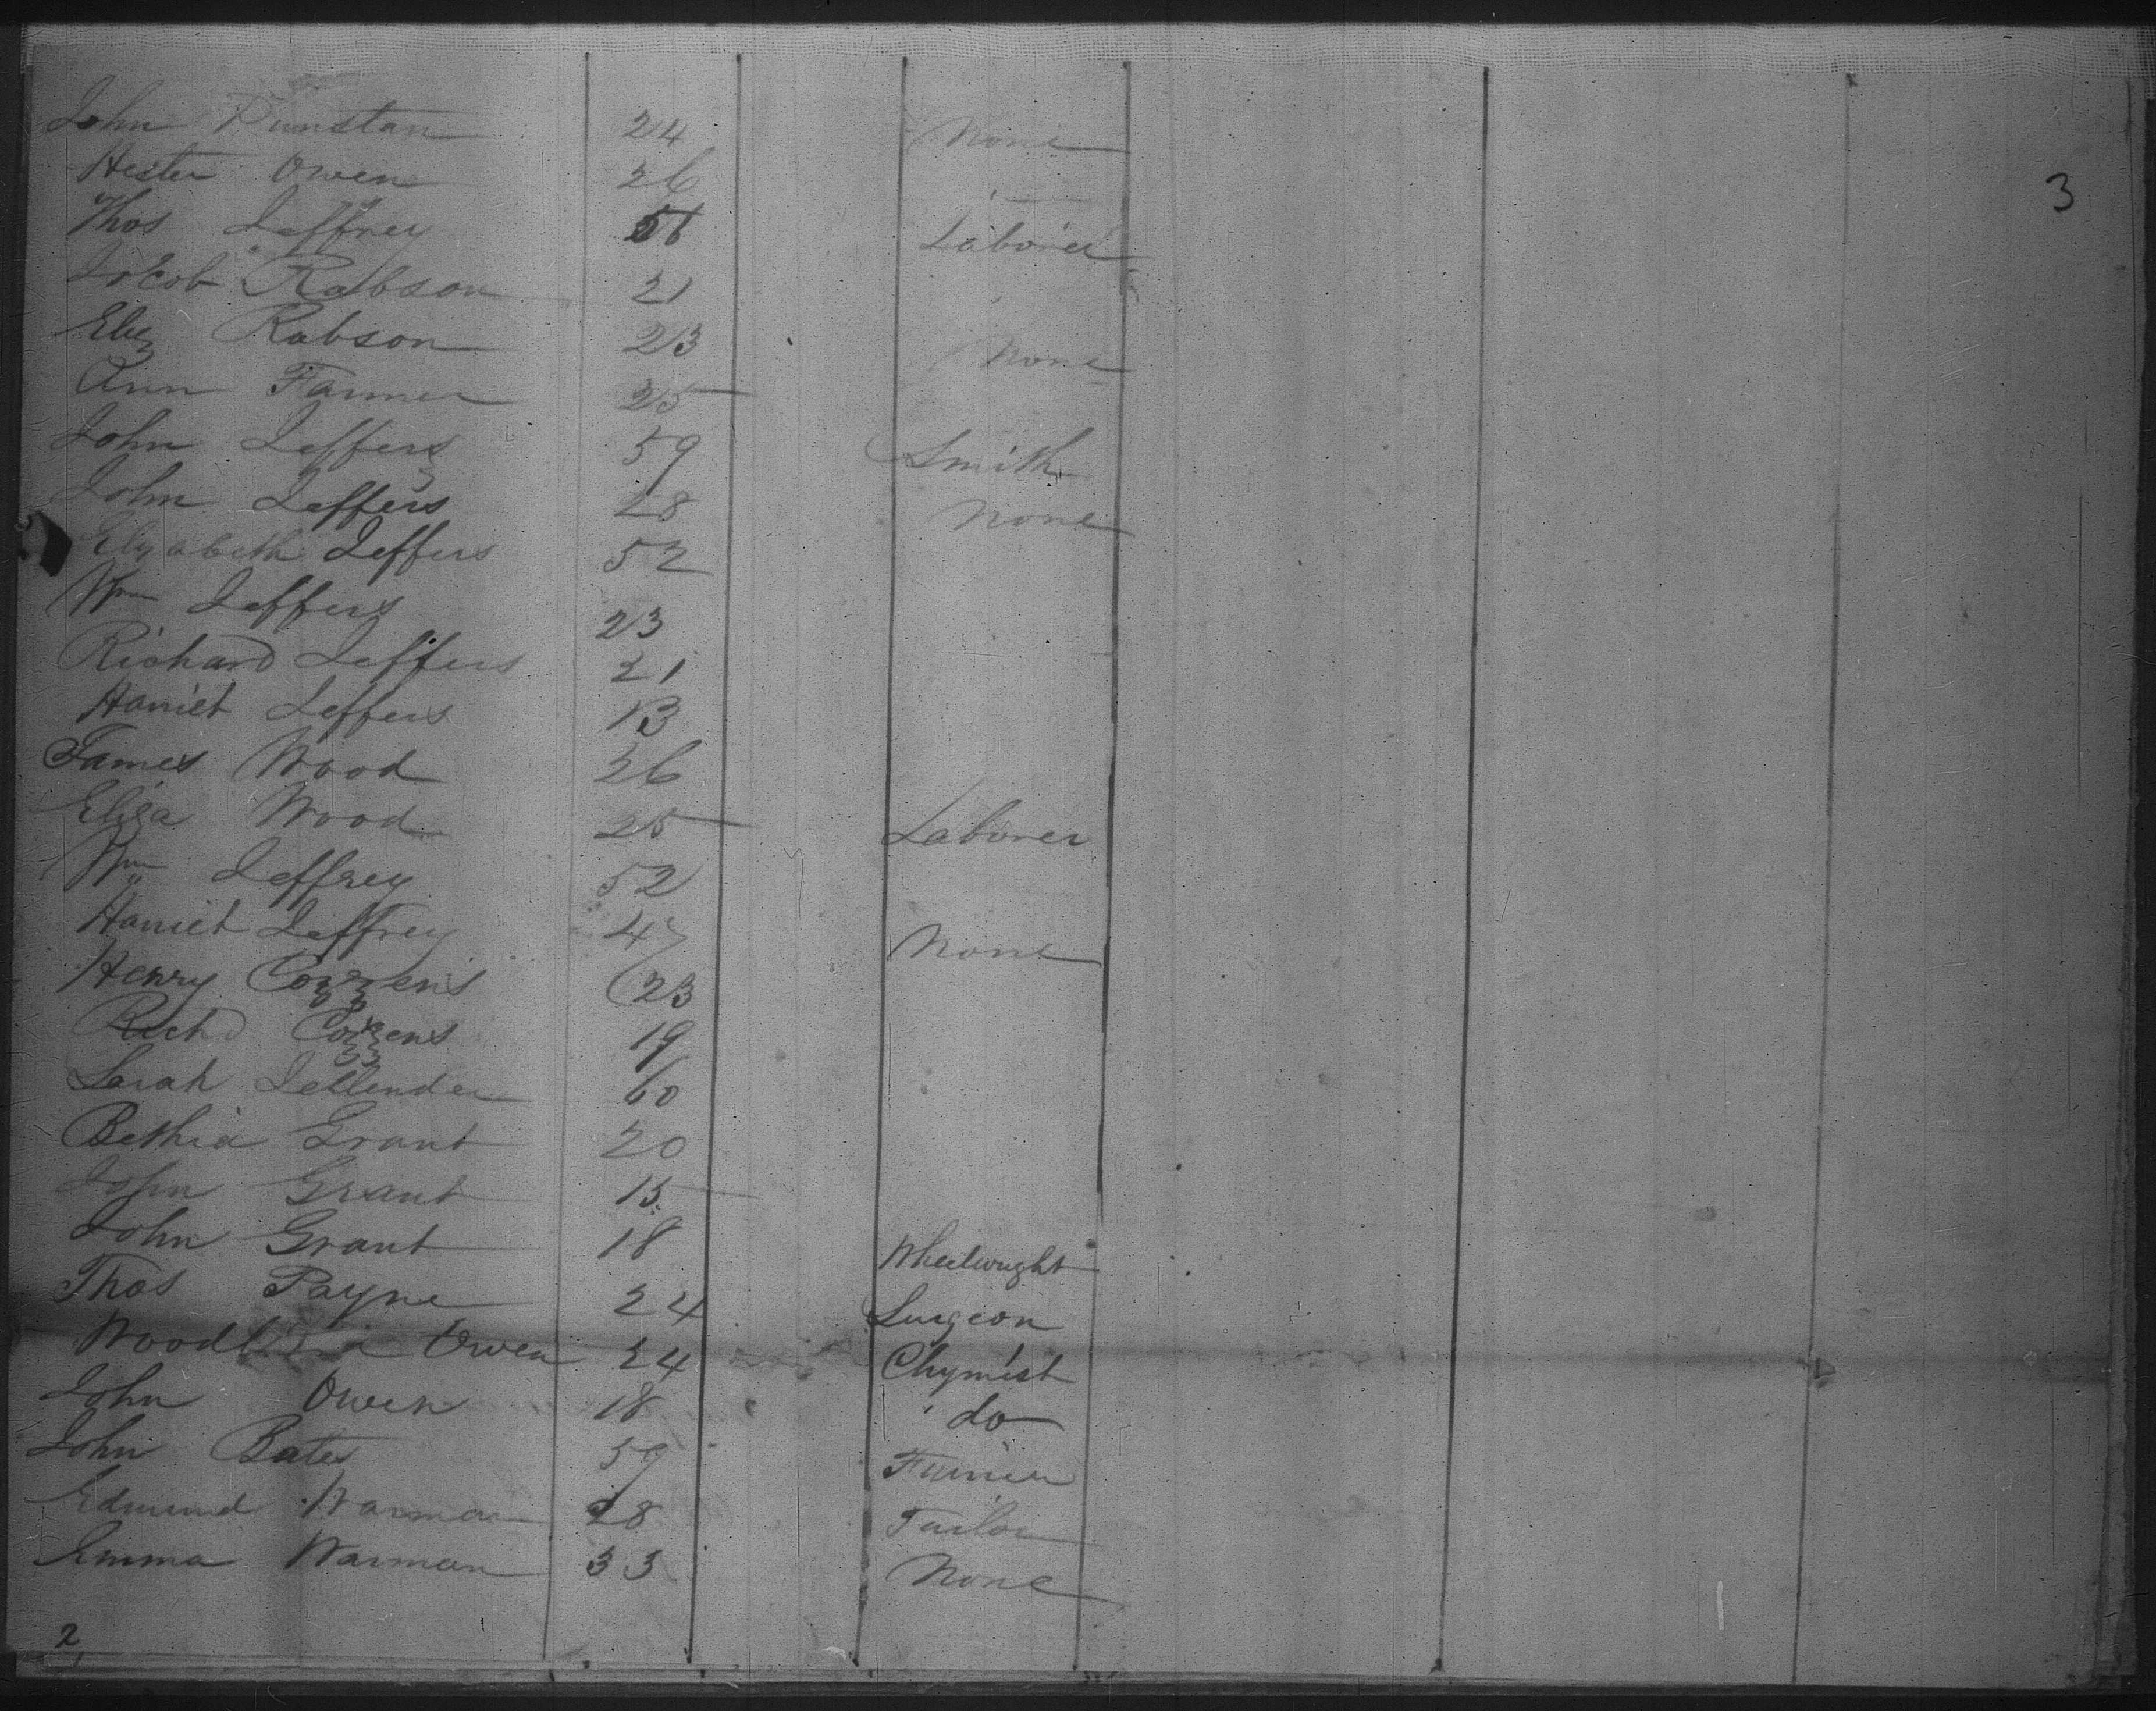 John Dunstan 24 None
Hester Owen 26
3
Thos Jeffrey Laborer
Jacob Rabson 21
Eliz Rabson 23 None
Ann Farmer 25
John Jeffers 59 Smith
John Jeffers 28 None
Elizabeth Jeffers 52
Wm Jeffers 23
Richard Jeffers 21
Harriet Jeffers 13
James Wood 26
Eliza Wood 25 Laborer
Wm Jeffrey 52
Harriet Jeffrey 47 None
Henry Cozzens 23
Richd Cozzens 19
Sarah 60
Bethia Grant 20
John Grant 15
John Grant 18 Wheelwright
Thos Payne 24 Surgeon
Owen 24 Chymist
John Owen 18 do
John Bates 59
Edmund Warman 28 Tailor
Emma Warman 33 None
2